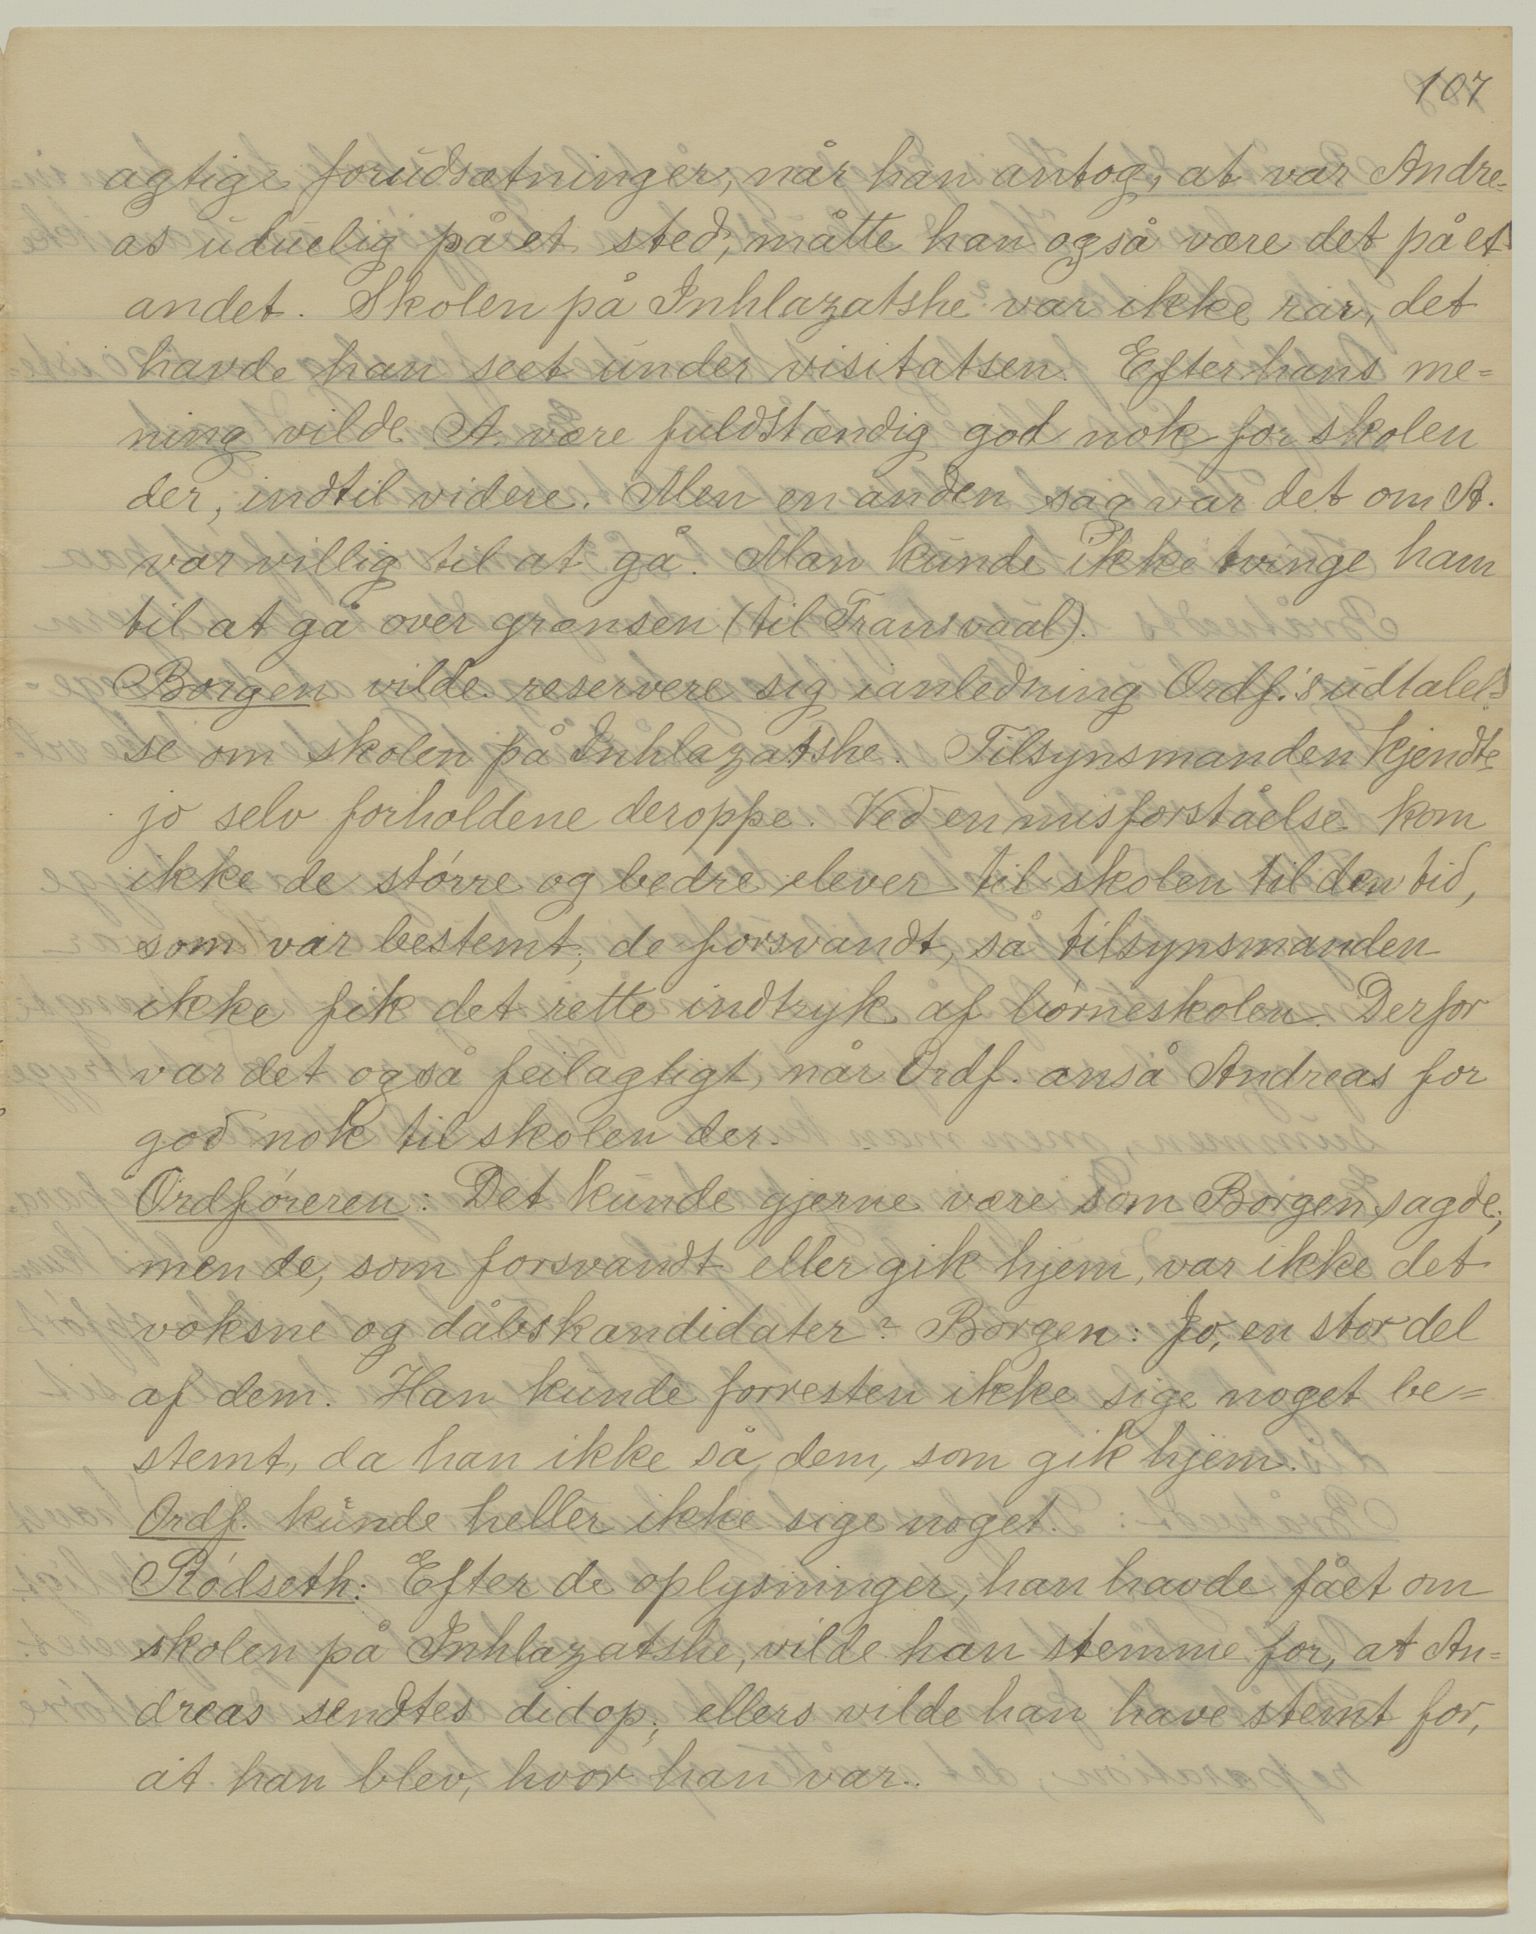 107
agtige forudsætninger, når han antog, at var Andre-
as uduelig på et sted, måtte han også være det på et
andet. Skolen på Inhlazatshe var ikke rar, det
havde han seet under visitatsen. Efter hans me=
ning vilde A. være fuldstændig god nok for skolen
der, indtil videre. Men en anden sag var det om A.
var villig til at gå. Man kunde ikke tvinge ham
til at gå over grænsen (til Transvaal).
Borgen vilde reservere sig ianledning Ordf.'s udtalel-
se om skolen på Inhlazatshe. Tilsynsmanden kjendte
jo selv forholdene deroppe. Ved en misforståelse kom
ikke de større og bedre elever til skolen til den tid,
som var bestemt; de forsvandt, så tilsynsmanden
ikke fik det rette indtryk af børneskolen. Derfor
var det også feilagtigt, når Ordf. anså Andreas for
god nok til skolen der.
Ordføreren: Det kunde gjerne være som Borgen sagde;
men de, som forsvandt eller gik hjem, var ikke det
voksne og dåbskandidater? Borgen: Jo, en stor del
af dem. Han kunde forresten ikke sige noget be=
stemt, da han ikke så dem, som gik hjem.
Ordf. kunde heller ikke sige noget.
Rødseth: Efter de oplysninger, han havde fået om
skolen på Inhlazatshe, vilde han stemme for, at An=
dreas sendtes didop; ellers vilde han have stemt for,
at han blev, hvor han var.